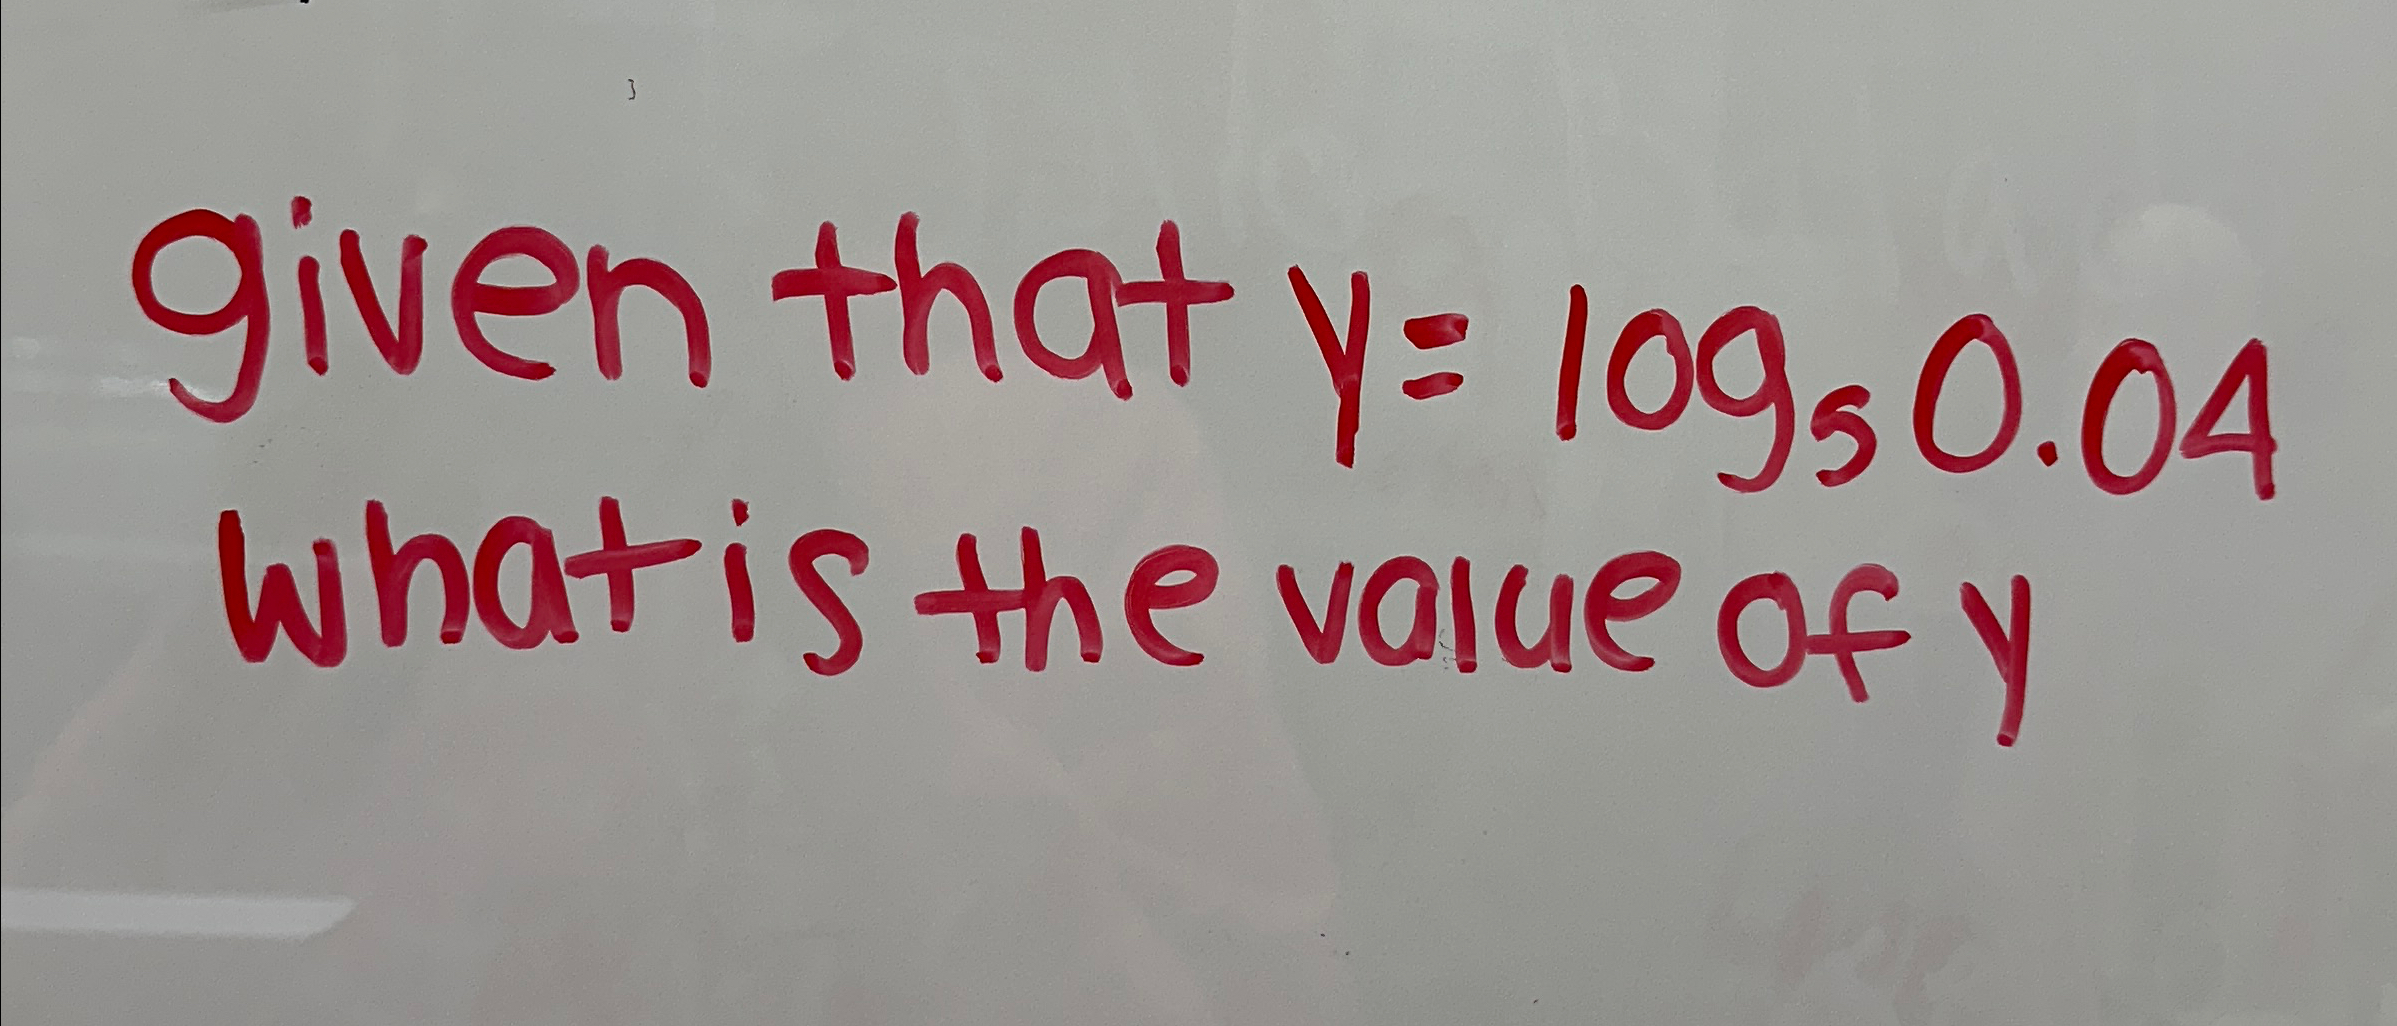 given that y = log₅ 0.04
what is the value of y